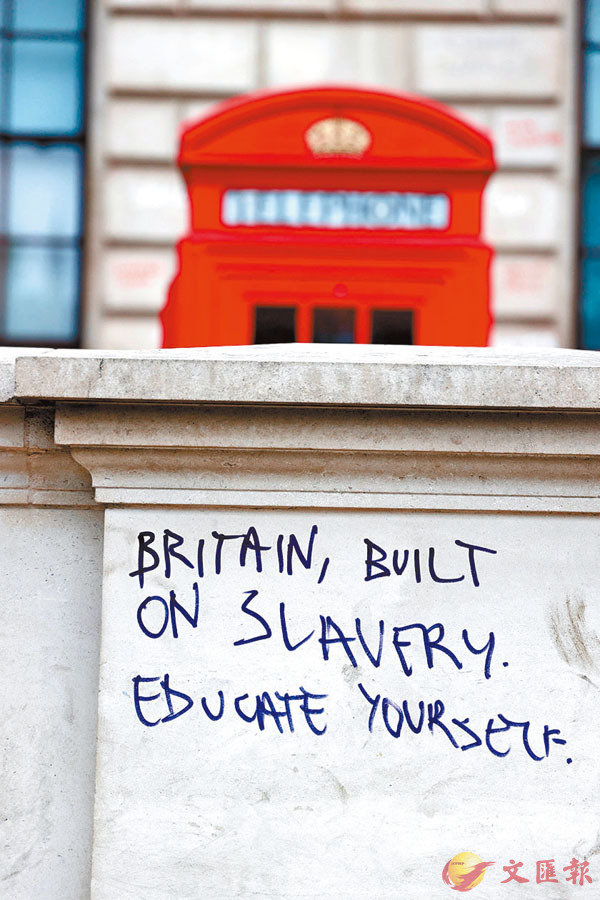 TELEPHONE
BRITAIN, BUILT
ON SLAVERY.
EDUCATE YOURSELF.
文匯報